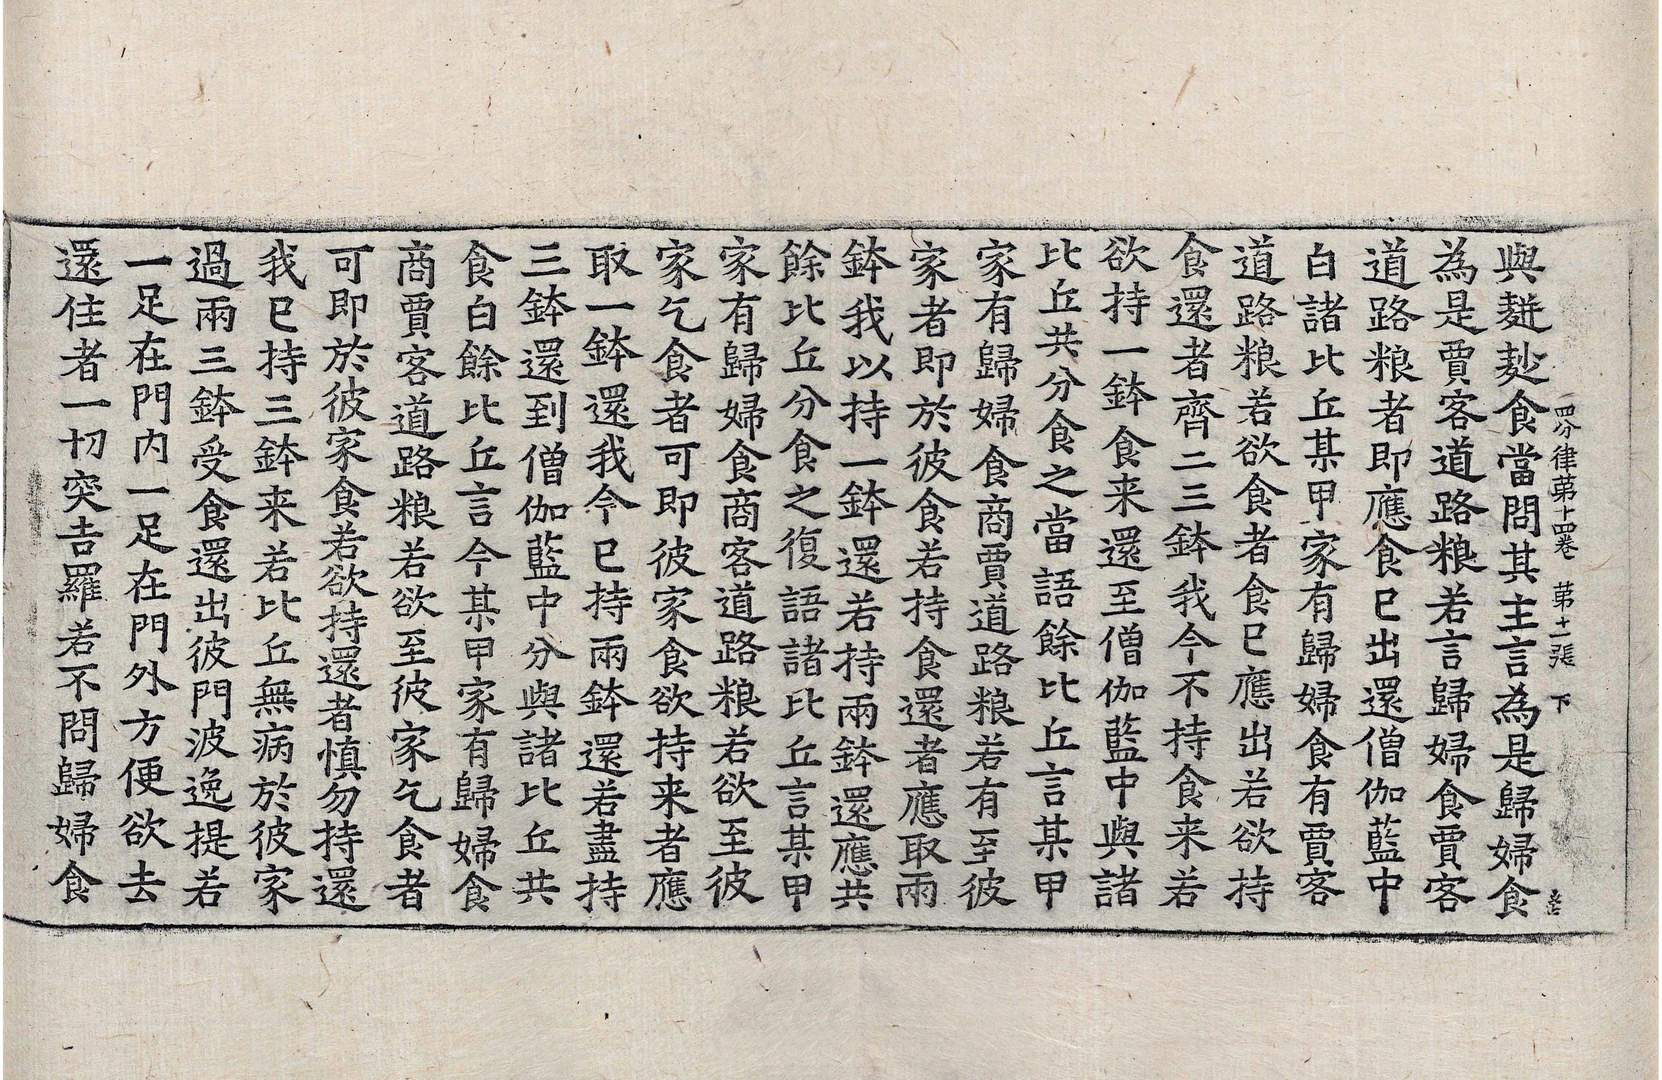 四分律苐十四卷　苐十二張　下
與䴵麨食當問其主言為是歸婦食
為是賈客道路粮若言歸婦食賈客
道路粮者即應食已出還僧伽藍中
白諸比丘某甲家有歸婦食有賈客
道路粮若欲食者食已應出若欲持
食還者齊二三鉢我今不持食来若
欲持一鉢食来還至僧伽藍中與諸
比丘共分食之當語餘比丘言某甲
家有歸婦食商賈道路粮若有至彼
家者即於彼食若持食還者應取兩
鉢我以持一鉢還若持兩鉢還應共
餘比丘分食之復語諸比丘言某甲
家有歸婦食商客道路粮若欲至彼
家乞食者可即彼家食欲持来者應
取一鉢還我今已持兩鉢還若盡持
三鉢還到僧伽藍中分與諸比丘共
食白餘比丘言今某甲家有歸婦食
商賈客道路粮若欲至彼家乞食者
可即於彼家食若欲持還者慎勿持還
我已持三鉢来若比丘無病於彼家
過兩三鉢受食還出彼門波逸提若
一足在門内一足在門外方便欲去
還住者一切突吉羅若不問歸婦食